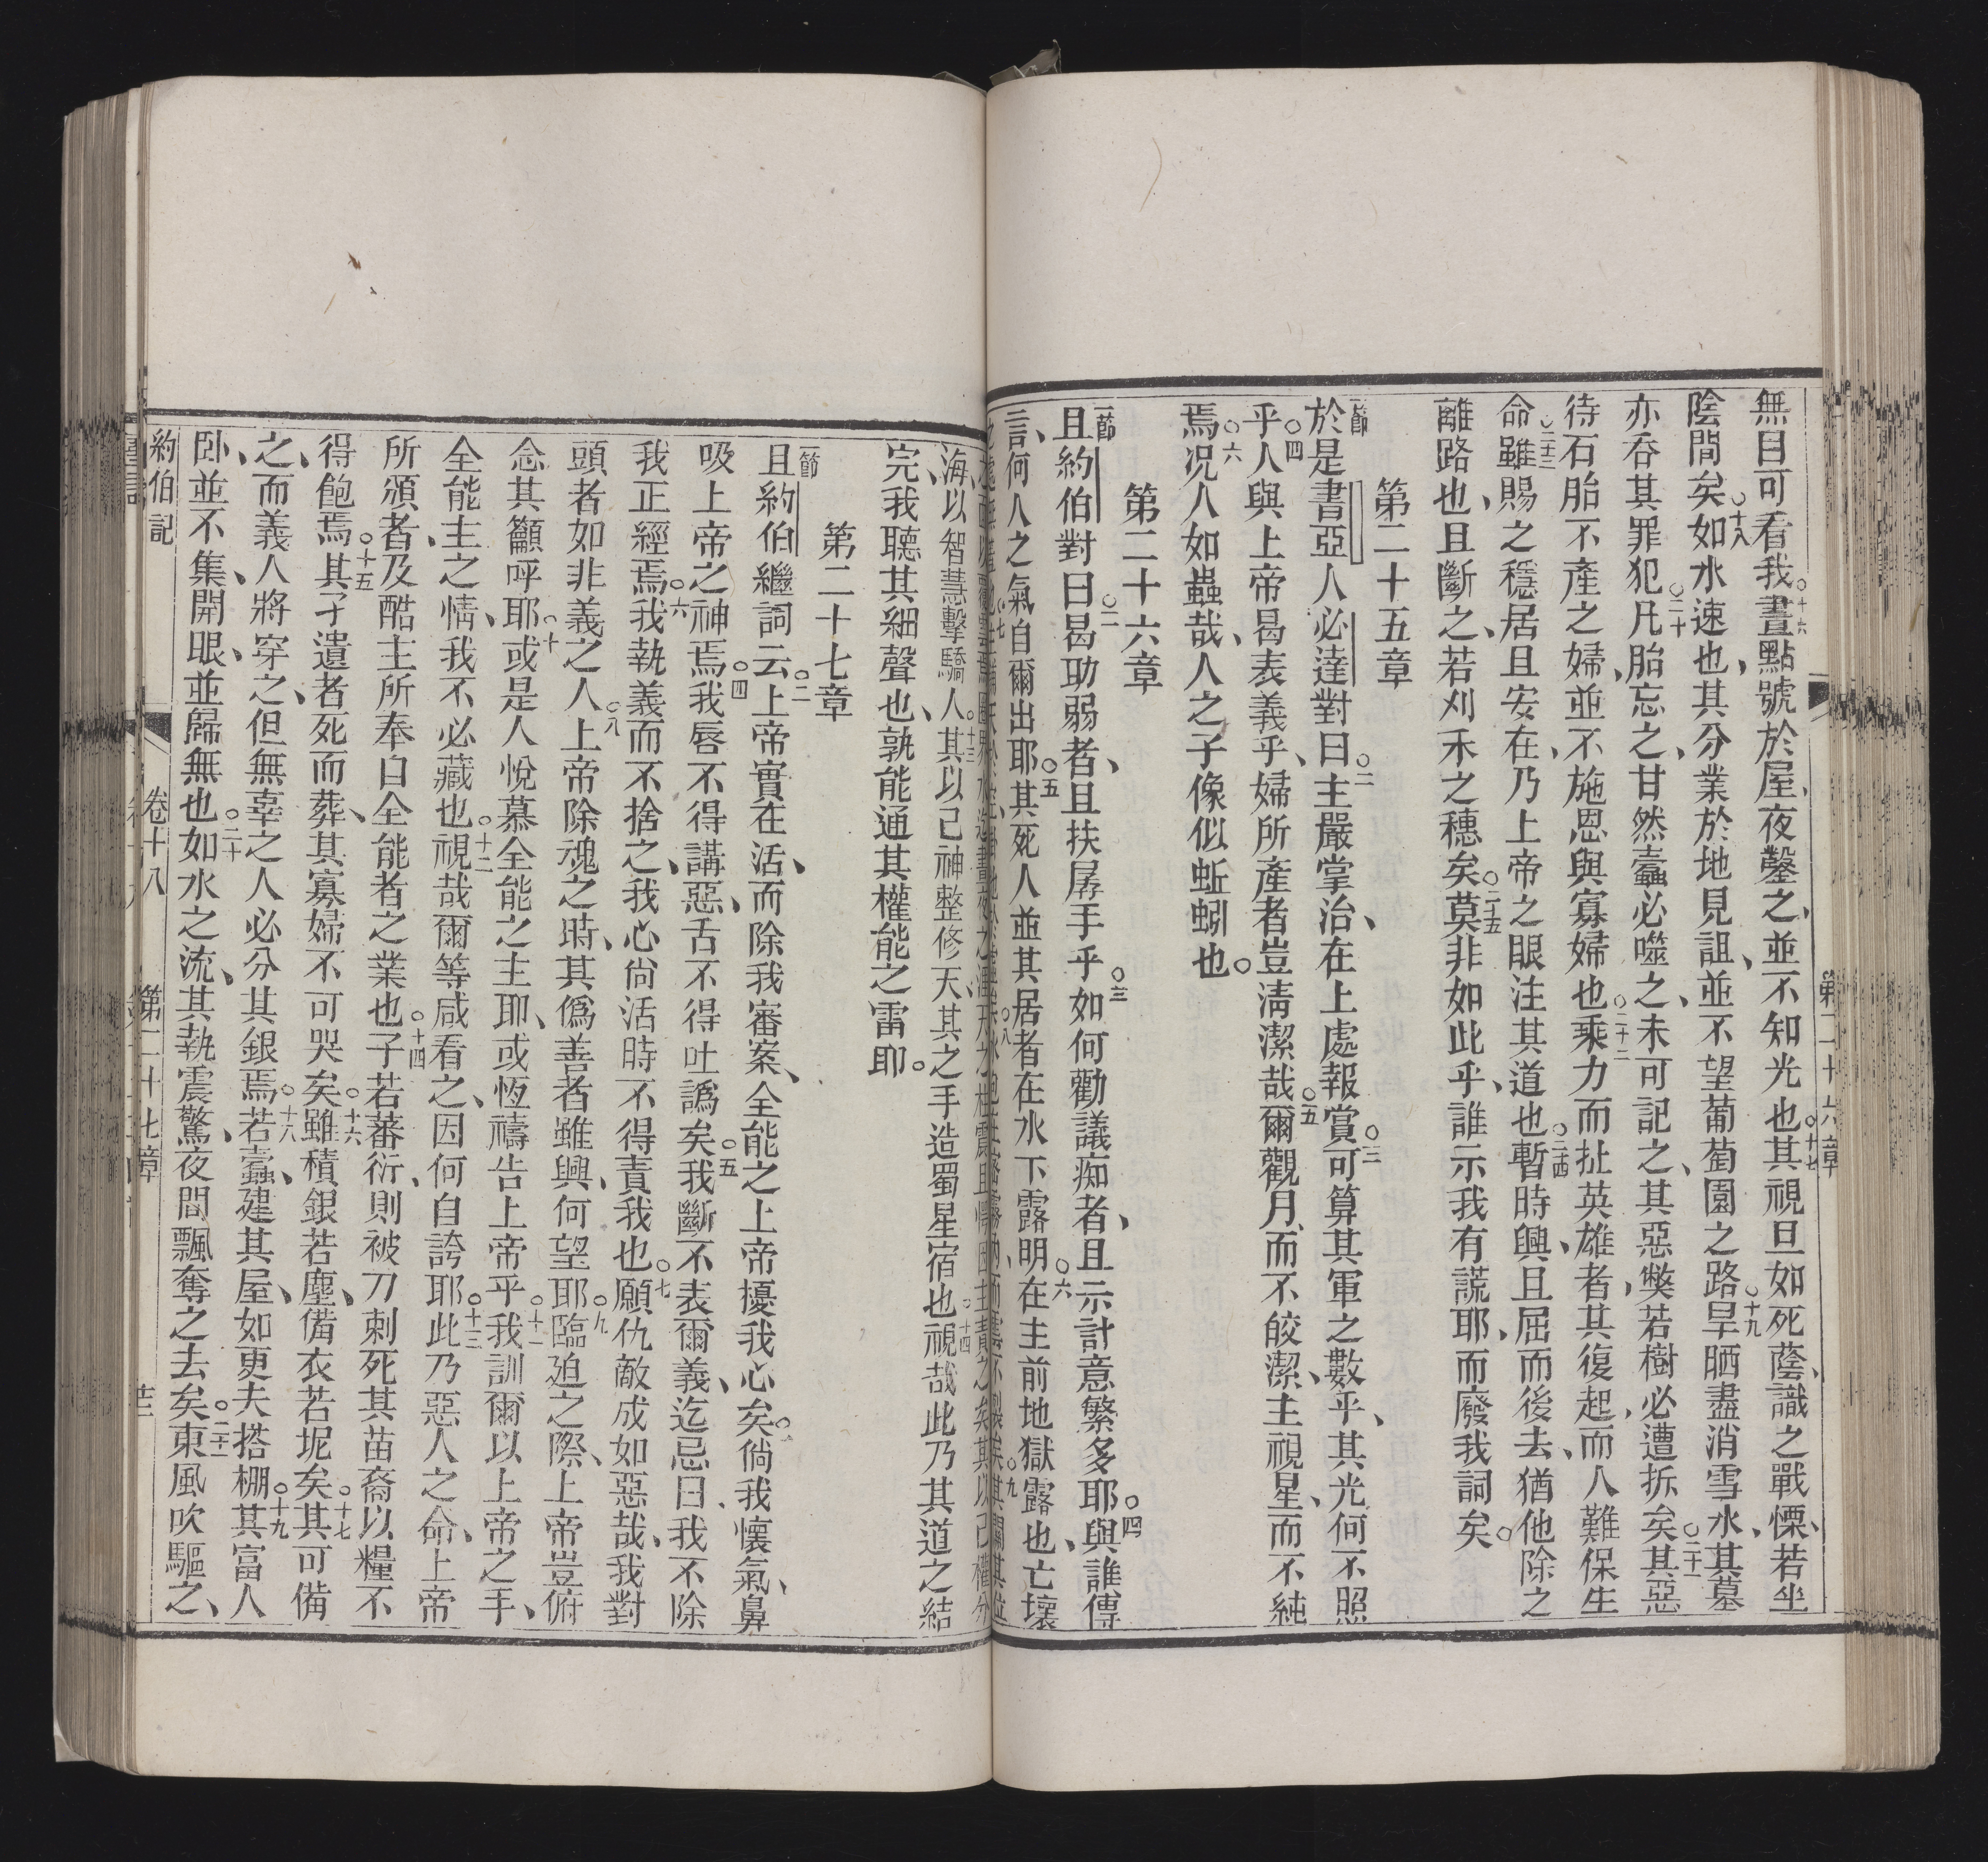 無目可看我○十六晝點號於屋、夜鑿之、並不知光也○十七其視旦如死蔭、識之戰慄、若坐
陰間矣○十八如水速也、其分業於地見詛、並不望葡萄園之路○十九旱晒盡消雪水、其墓
亦吞其罪犯○二十凡胎忘之、甘然蠹必噬之、未可記之、其惡獘若樹必遭拆矣○二十一其惡
待石胎不產之婦、並不施恩與寡婦也○二十二乘力而扯英雄者、其復起、而人難保生
命○二十三雖賜之穩居且安在、乃上帝之眼注其道也○二十四暫時興、且屈而後去、猶他除之
離路也、且斷之、若刈禾之穗矣○二十五莫非如此乎、誰示我有謊耶、而廢我詞矣○
第二十五章
一節於是書亞人必達對曰○二主嚴掌治、在上處報賞○三可算其軍之數乎、其光何不照
乎○四人與上帝曷表義乎、婦所產者豈清潔哉○五爾觀月、而不皎潔、主視星、而不純
焉○六况人如蟲哉、人之子像似蚯蚓也○
第二十六章
一節且約伯對曰○二曷助弱者、且扶孱手乎○三如何勸議痴者、且示計意繁多耶○四與誰傳
言、何人之氣自爾出耶○五其死人並其居者在水下露明○六在主前地獄露也、亡壞
海、以智慧擊驕人○十三其以己神整修天、其之手造蜀星宿也○十四視哉此乃其道之結
完、我聽其細聲也、孰能通其權能之雷耶○
第二十七章
一節且約伯繼詞云○二上帝實在活、而除我審案、全能之上帝擾我心矣○倘我懷氣、鼻
吸上帝之神焉○四我唇不得講惡、舌不得吐譌矣○五我斷不表爾義、迄忌日、我不除
我正經焉○六我執義而不捨之、我心尙活時不得責我也○七願仇敵成如惡哉、我對
頭者如非義之人○八上帝除魂之時、其僞善者雖興、何望耶○九臨迫之際、上帝豈俯
念其籲呼耶○十或是人悅慕全能之主耶、或恆禱告上帝乎○十一我訓爾以上帝之手、
全能主之情、我不必藏也○十二視哉爾等咸看之、因何自誇耶○十三此乃惡人之命、上帝
所頒者、及酷主所奉自全能者之業也○十四子若蕃衍、則被刀刺死、其苗裔以糧不
得飽焉○十五其孑遺者死而葬、其寡婦不可哭矣○十六雖積銀若塵、備衣若坭矣○十七其可備
之、而義人將穿之、但無辜之人必分其銀焉○十八若蠹、建其屋、如更夫搭棚○十九其富人
卧、並不集、開眼、並歸無也○二十如水之流、其執震驚、夜間飄奪之去矣○二十一東風吹驅之、
約伯記 卷十八 第二十七章